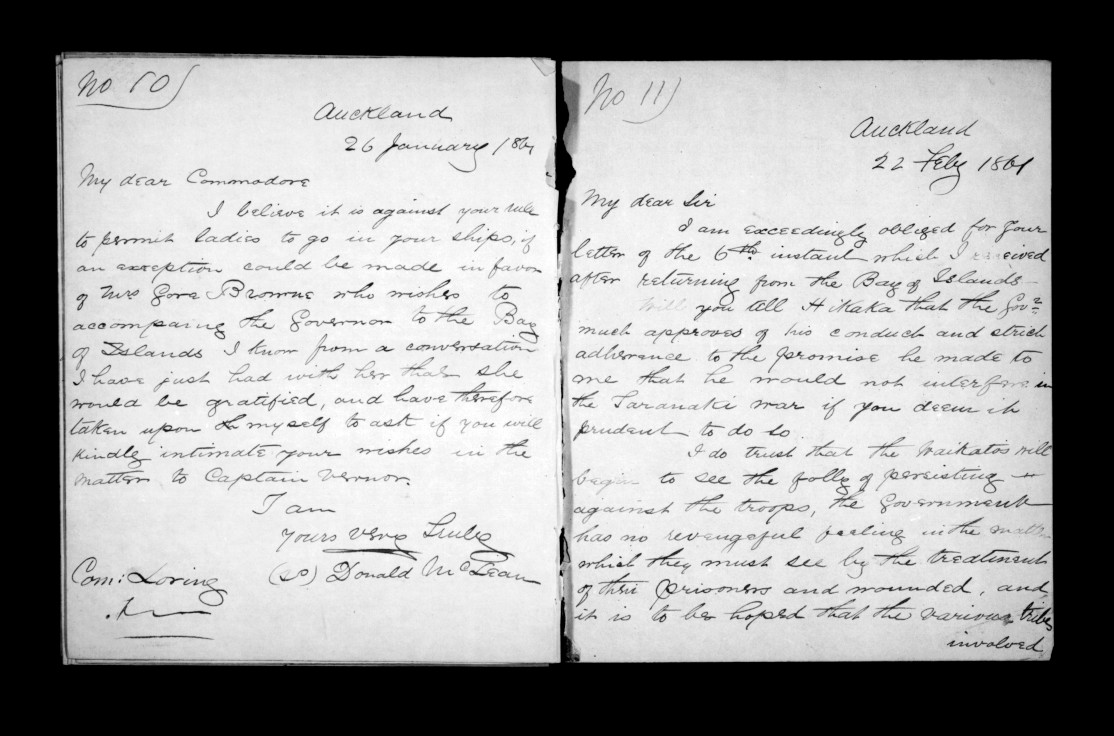 No 10)
Auckland
26 January 1861
My dear Commodore
I believe it is against your rule
to permit ladies to go in your ships, if
an exception could be made in favor
of Mrs Gore Browne who wishes to
accompaing the Governor to the Bay
of Islands I know from a conversation
I have just had with her that she
would be gratified, and have therefore
taken upon myself to ask if you will
kindly intimate your wishes in the
matter to Captain Vernon.
I am
Yours very Truly
(Sd) Donald McLean
Com: Loring
No 11)
Auckland
22 Feby 1861
My dear Sir
I am exceedingly obliged for your
letter of the 6th instant which I received
after returning from the Bay of Islands
Will you tell Hikaka that the Govt
much approves of his conduct and strict
adherance to the promise he made to
me that he would not interfere in
the Taranaki war if you deem it
prudent to do so.
I do trust that the Waikatos will
begin to see the folly of persisting
against the troops, the Government
has no revengeful feeling in the matter
which they must see by the treatment
of their prisoners and wounded, and
it is to be hoped that the various tribes
involved